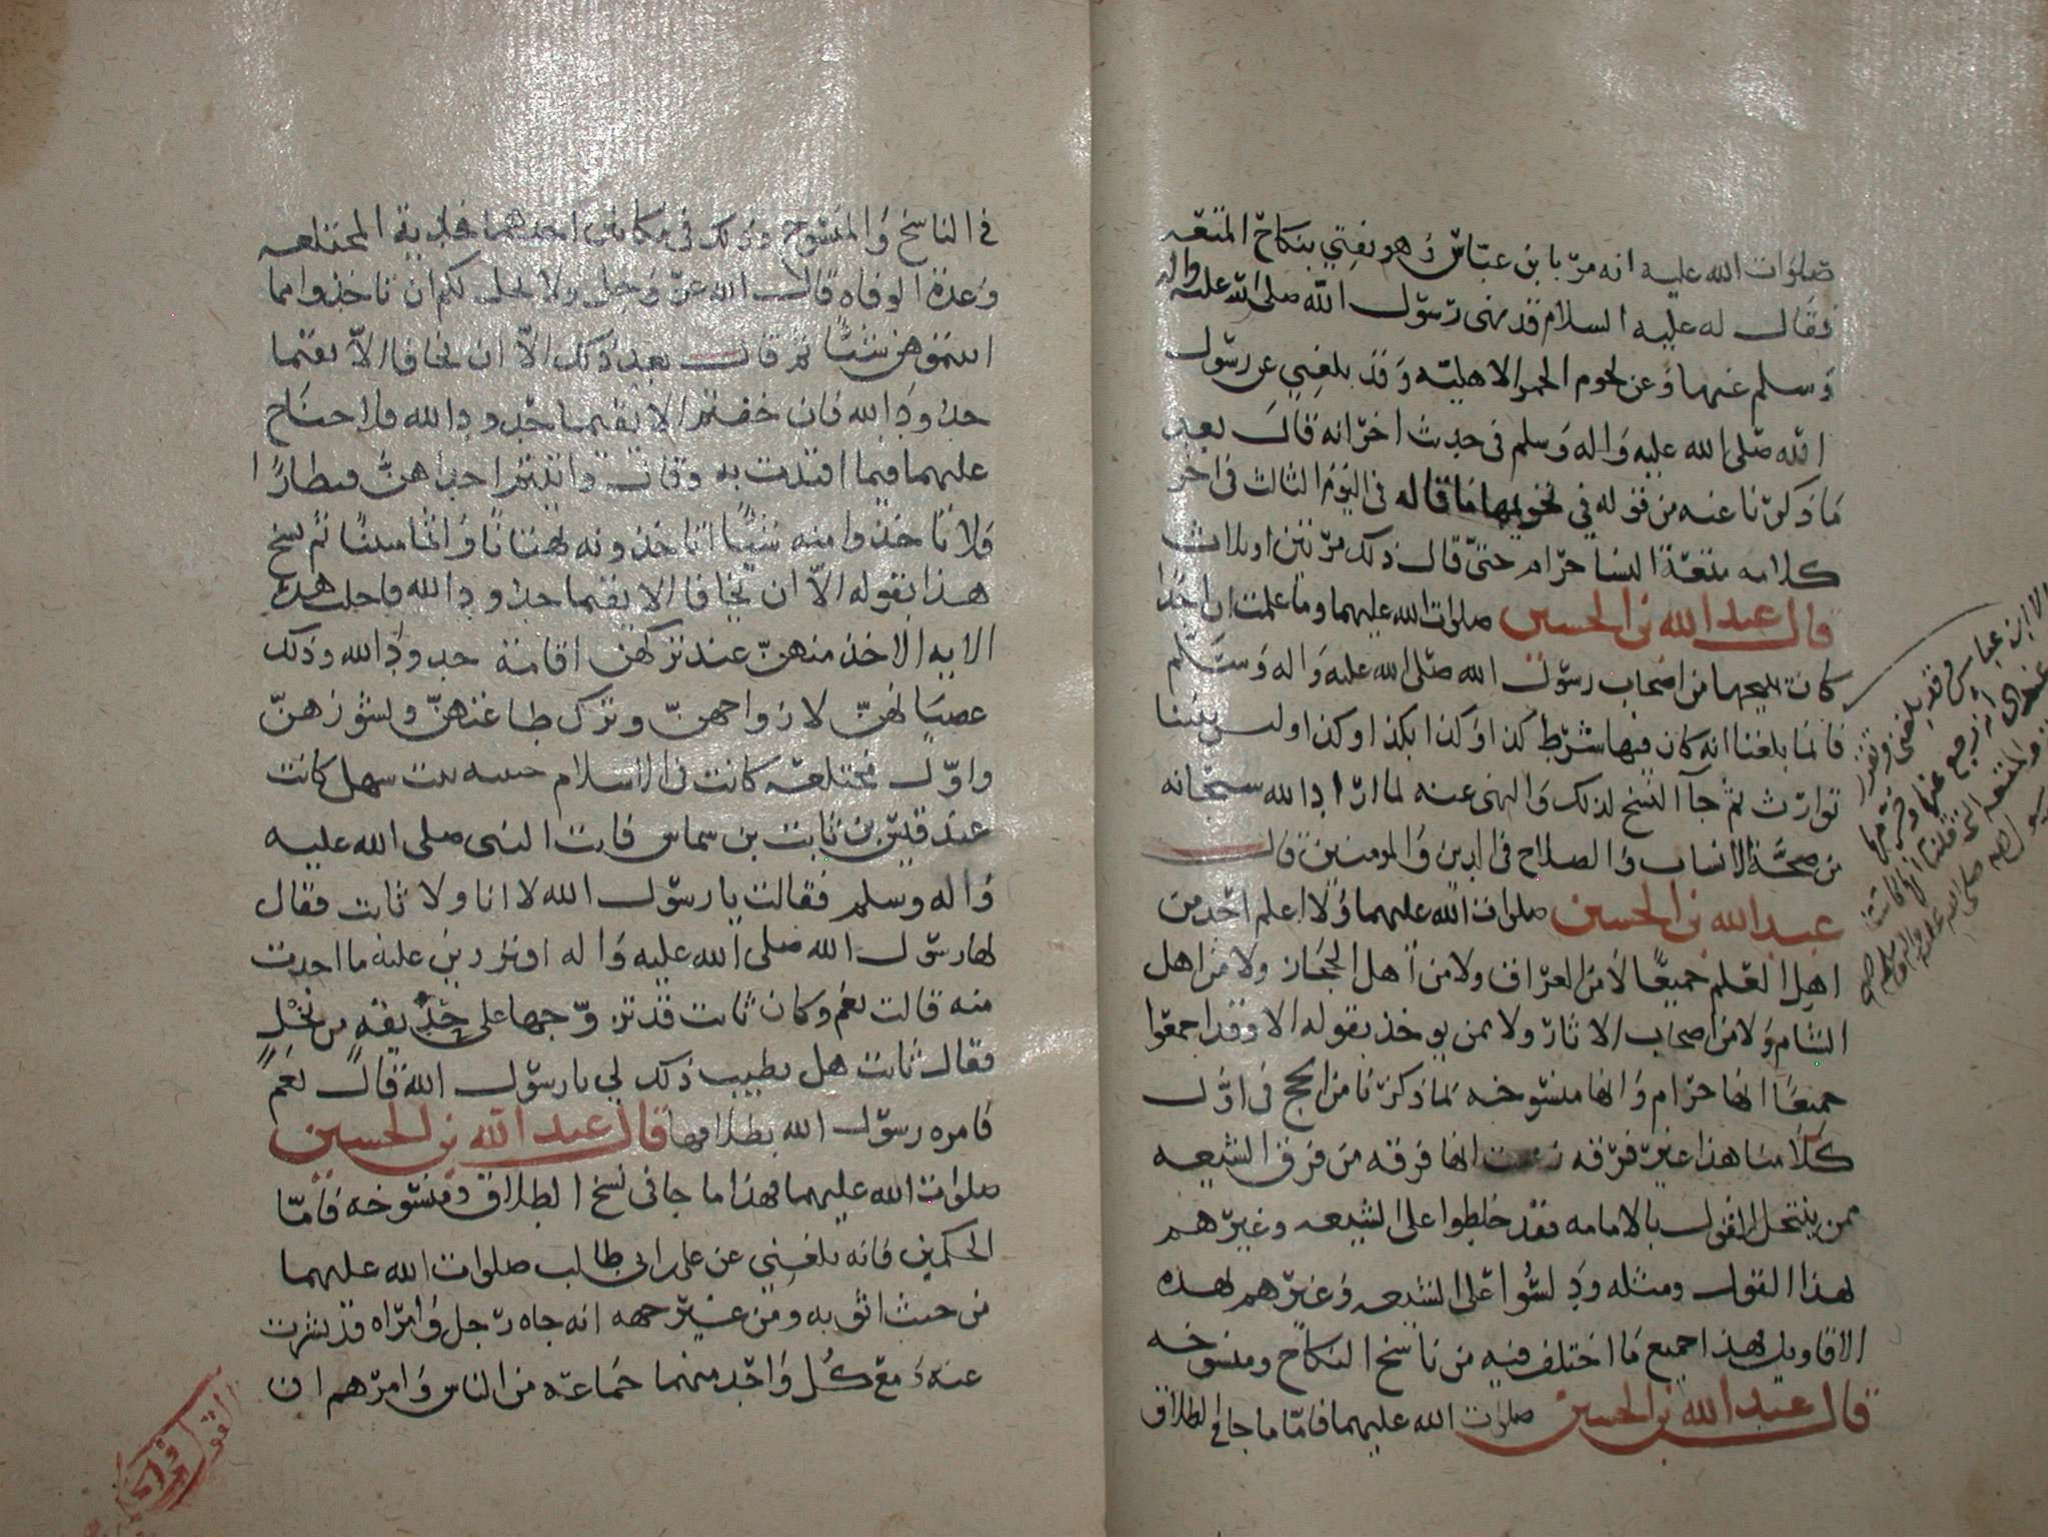 صلوات الله عليه انه مرّ بابن عبّاس وهو يفتي بنكاح المتعه
فقال له عليه السلام قد نهى رسول الله صلى الله عليه واله
وسلم عنها وعن لحوم الحمر الاهليّه وقد بلغني عن رسول
الله صلى الله عليه واله وسلم في حديث اخر انه قال بعد
ما ذكرنا عنه من قوله في تحريمها ما قاله في اليوم الثالث في اخر
كلامه متعة النسا حرام حتى قال ذلك مرتين او ثلاث
قال عبد الله بن الحسين صلوات الله عليهما وما علمت ان احدا
كان يبيحها من اصحاب رسول الله صلى الله عليه واله وسلم
فانما بلغنا انه كان فيها شرط كذا وكذا بكذا وكذا وليس بيننا
توارث ثم جآ النسخ لذلك والنهى عنه لما اراد الله سبحانه
من صحّة الانساب والصلاح في الدين والمومنين قال
عبد الله بن الحسين صلوات الله عليهما ولا اعلم احد من
اهل العلم جميعًا لا من العراق ولا من اهل الحجاز ولا من اهل
الشام ولا من اصحاب الاثار ولا ممن يوخذ بقوله الا وقد اجمعوا
جميعًا انها حرام وانها منسوخه لما ذكرنا من الحجج في اوّل
كلامنا هذا غير فرقه زعمت انها فرقه من فرق الشيعه
ممن ينتحل القول بالامامه فقد خلطوا على الشيعه وغيرهم
بهذا القول ومثله ودلسوا على الشيعه وغيرهم بهذه
الاقاويل فهذا جميع ما اختلف فيه من ناسخ النكاح ومنسوخه
قال عبد الله بن الحسين صلوات الله عليهما فامّا ما جا في الطلاق
الا ابن عباس وقد بلغني
في الناسخ والمنسوخ وذلك في مكانين احدهما فدية المختلعه
وعدة الوفاه قال الله عز وجل ولا يحل لكم ان تاخذوا مما
اتيتموهن شيئًا ثم قال بعد ذلك الّا ان يخافا الّا يقيما
حدود الله فان خفتم الا يقيما حدود الله فلا جناح
عليهما فيما افتدت به وقال واتيتم احداهنّ قنطارًا
فلا تاخذوا منه شيئًا اتاخذونه بهتانًا واثما مبينًا ثم نسخ
هذا بقوله الّا ان يخافا الا يقيما حدود الله فاحل هذه
الايه الاخذ منهنّ عند تركهن اقامة حدود الله وذلك
عصيانهنّ لازواجهنّ وترك طاعتهنّ ونشوزهنّ
واوّل مختلعه كانت في الاسلام حبيبه بنت سهل كانت
عند قيس بن ثابت بن سماس فاتت النبى صلى الله عليه
واله وسلم فقالت يا رسول الله لا انا ولا ثابت فقال
لها رسول الله صلى الله عليه واله اوتردين عليه ما اخذت
منه قالت نعم وكان ثابت قد تزوّجها على حديقه من نخل
فقال ثابت هل يطيب ذلك لي يا رسول الله قال نعم
فامره رسول الله بطلاقها قال عبد الله بن الحسين
صلوات الله عليهما فهذا ما جا في نسخ الطلاق ومنسوخه فامّا
الحكمين فانه بلغني عن على ابى طالب صلوات الله عليهما
من حيث اثق به ومن غير جهه انه جاه رجل وامراه قد نشرت
عنه ومع كل واحد منهما جماعه من الناس وامرهم ان
القول في